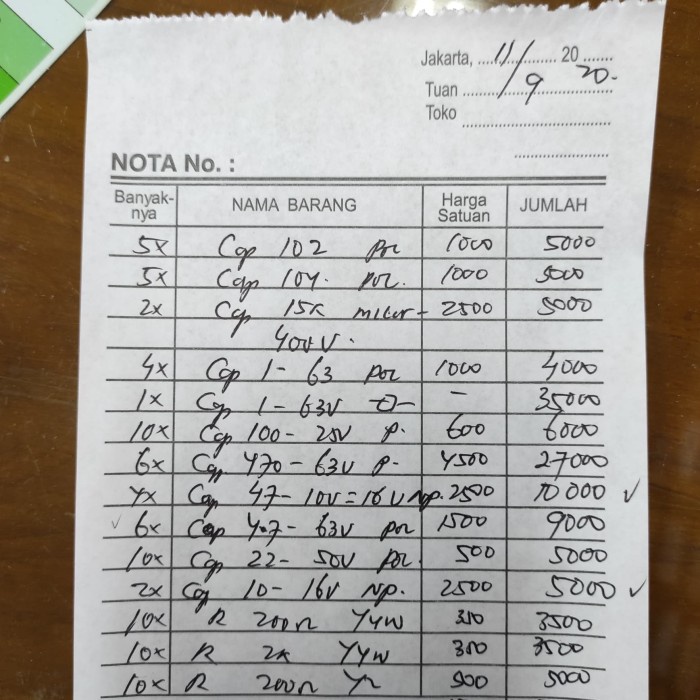 Jakarta, 11/9 20 20.
Tuan
Toko
NOTA No. :
Banyak-nya NAMA BARANG Harga Satuan JUMLAH
5x Cap 102 por 1000 5000
5x Cap 104. por. 1000 5000
2x Cap 15k 2500 5000
400V.
4x Cap 1- 63 por 1000 4000
1x Cap 1- 63V - 35000
10x Cap 100- 25V p. 600 6000
6x Cap 470- 63V p- 4500 27000
4x Cap 47- 10V=16V Np. 2500 10000 ✓
✓ 6x Cap 4.7- 63V por 1500 9000
10x Cap 22- 50V por. 500 5000
2x Cap 10- 16V Np. 2500 5000 ✓
10x R 200Ω 350 3500
10x R 2k 350 3500
10x R 200Ω 500 5000